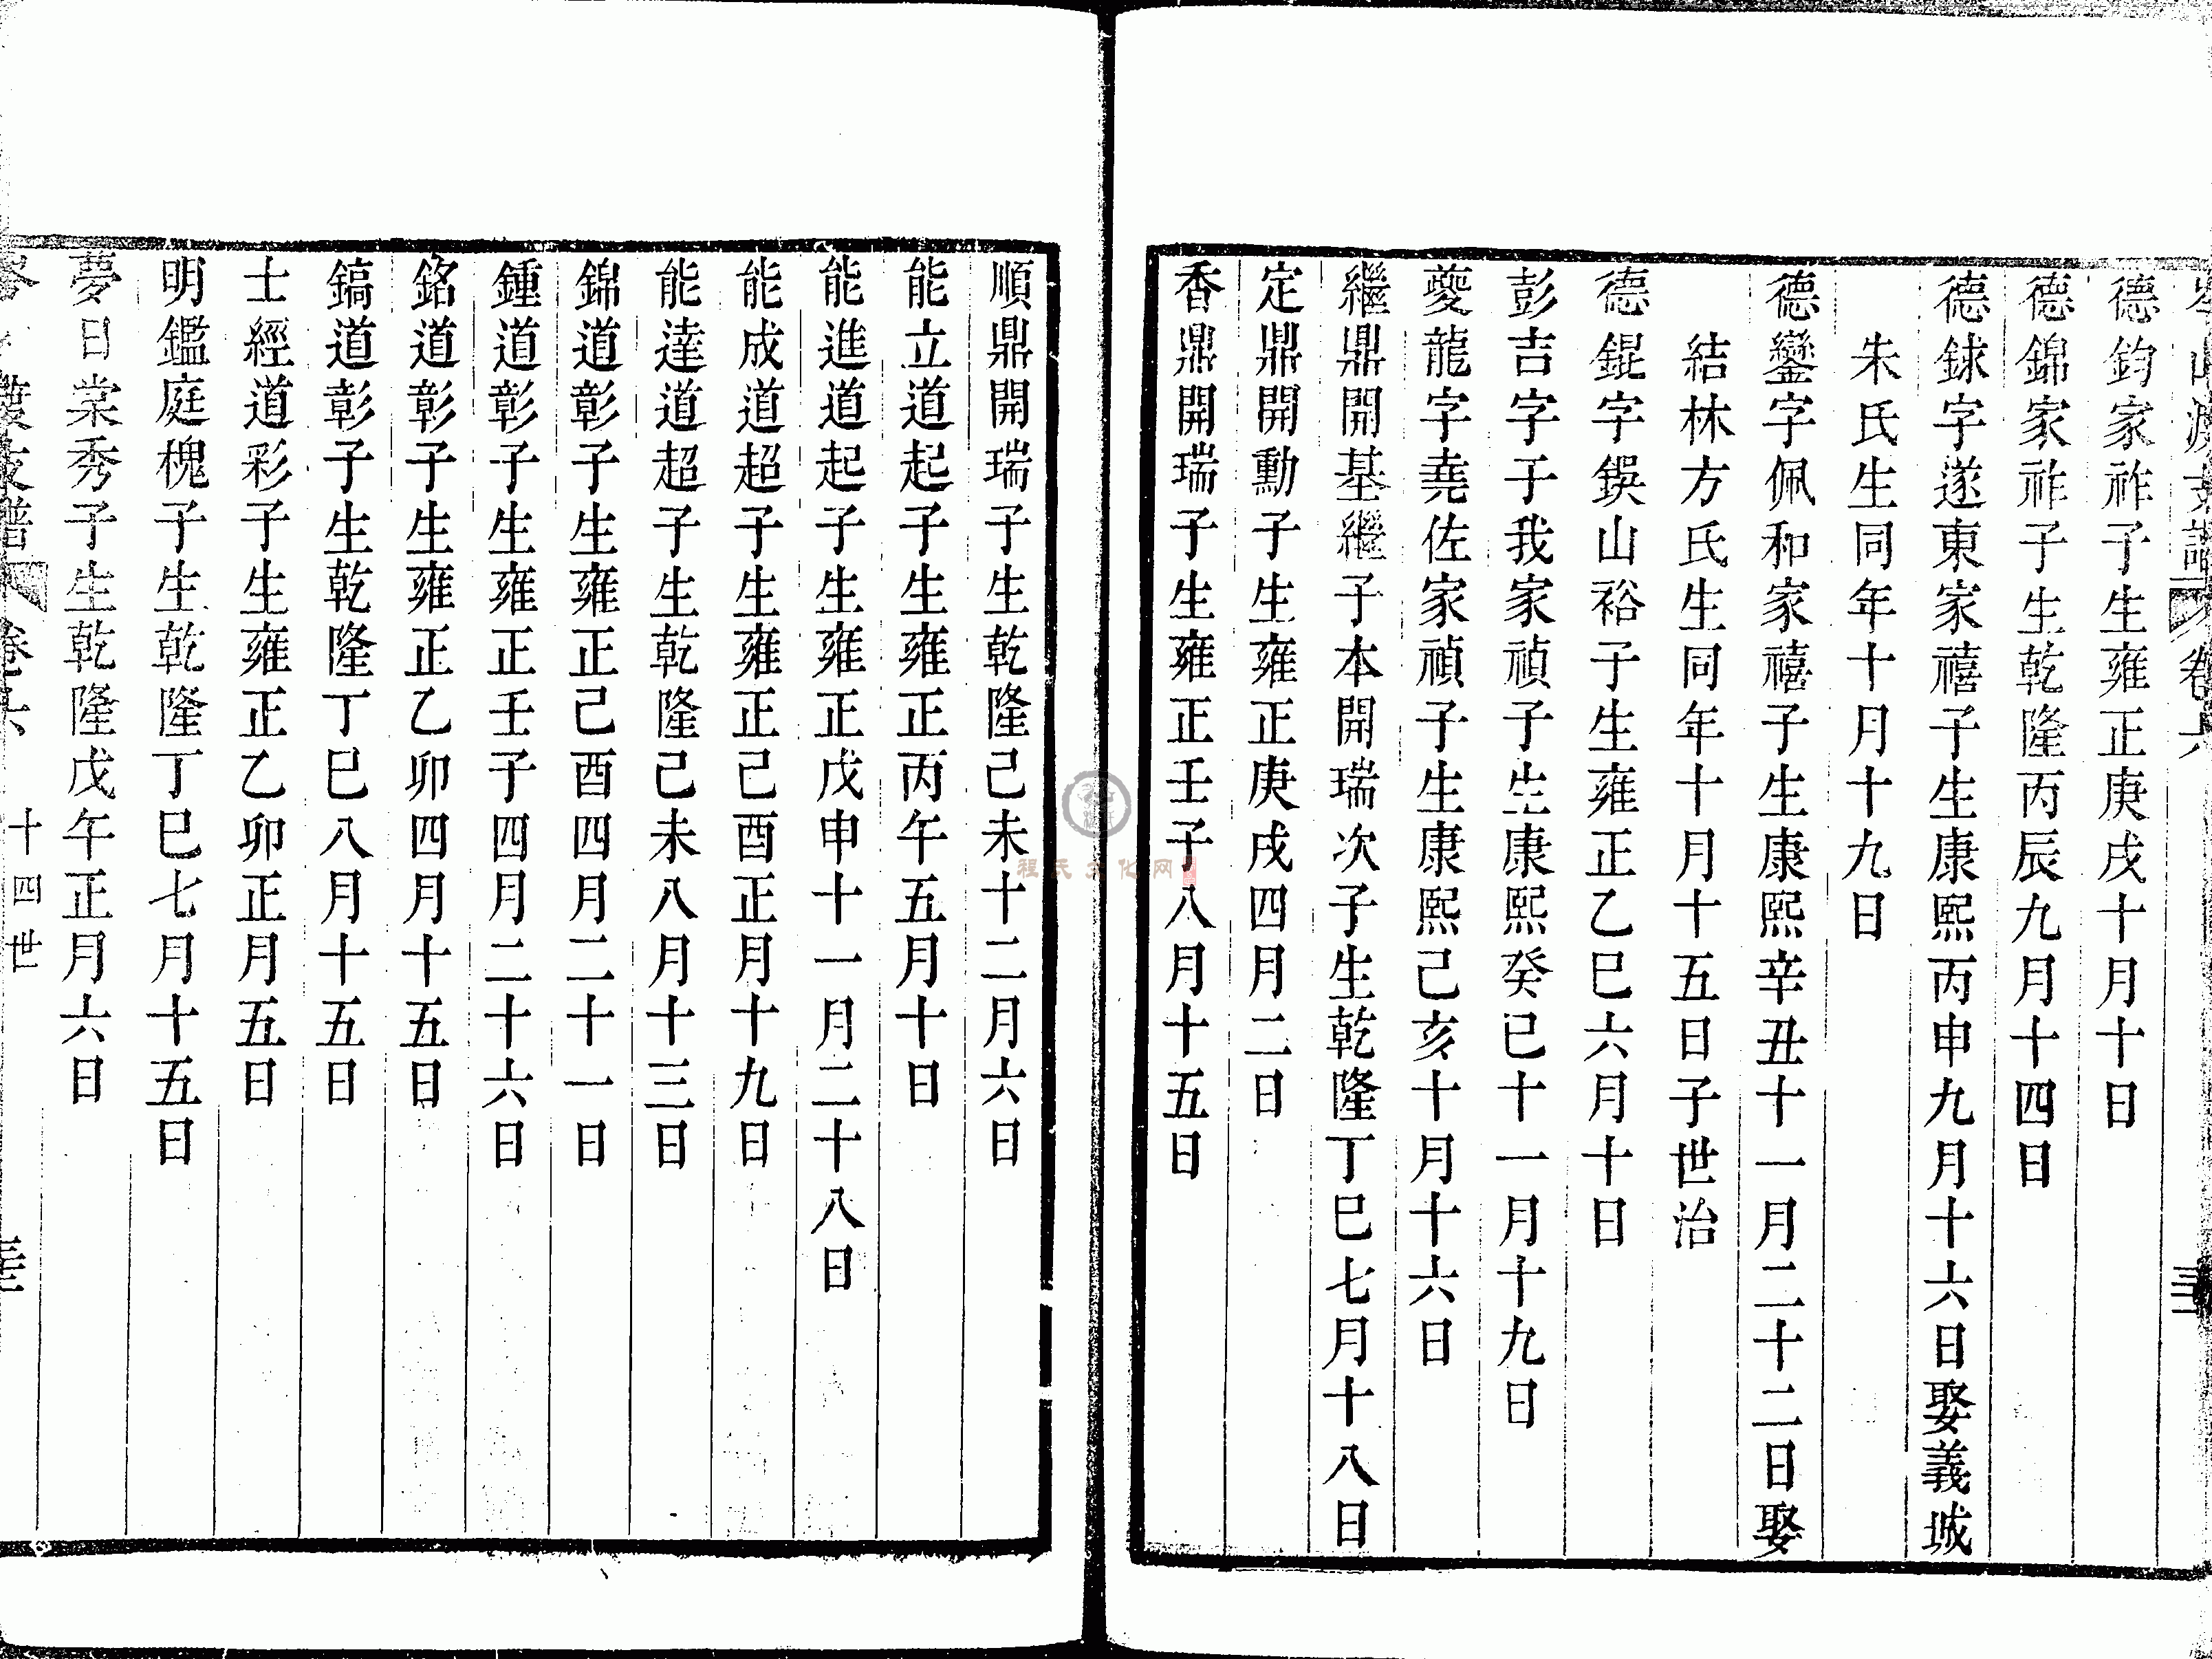 德鈞家祚子生雍正庚戌十月十日
德錦家祚子生乾隆丙辰九月十四日
德銶字遂東家禧子生康熙丙申九月十六日娶義城
朱氏生同年十月十九日
德鑾字佩和家禧子生康熙辛丑十一月二十二日娶
結林方氏生同年十月十五日子世治
德錕字鋘山裕子生雍正乙巳六月十日
彭吉字于我家禎子生康熙癸巳十一月十九日
夔龍字堯佐家禎子生康熙己亥十月十六日
繼鼎開基繼子本開瑞次子生乾隆丁巳七月十八日
定鼎開勳子生雍正庚戌四月二日
香鼎開瑞子生雍正壬子八月十五日
順鼎開瑞子生乾隆己未十二月六日
能立道起子生雍正丙午五月十日
能進道起子生雍正戊申十一月二十八日
能成道超子生雍正己酉正月十九日
能達道超子生乾隆己未八月十三日
錦道彰子生雍正己酉四月二十一日
鍾道彰子生雍正壬子四月二十六日
銘道彰子生雍正乙卯四月十五日
鎬道彰子生乾隆丁巳八月十五日
士經道彩子生雍正乙卯正月五日
明鑑庭槐子生乾隆丁巳七月十五日
夢日棠秀子生乾隆戊午正月六日
支譜 卷六 十四世
程氏文化网